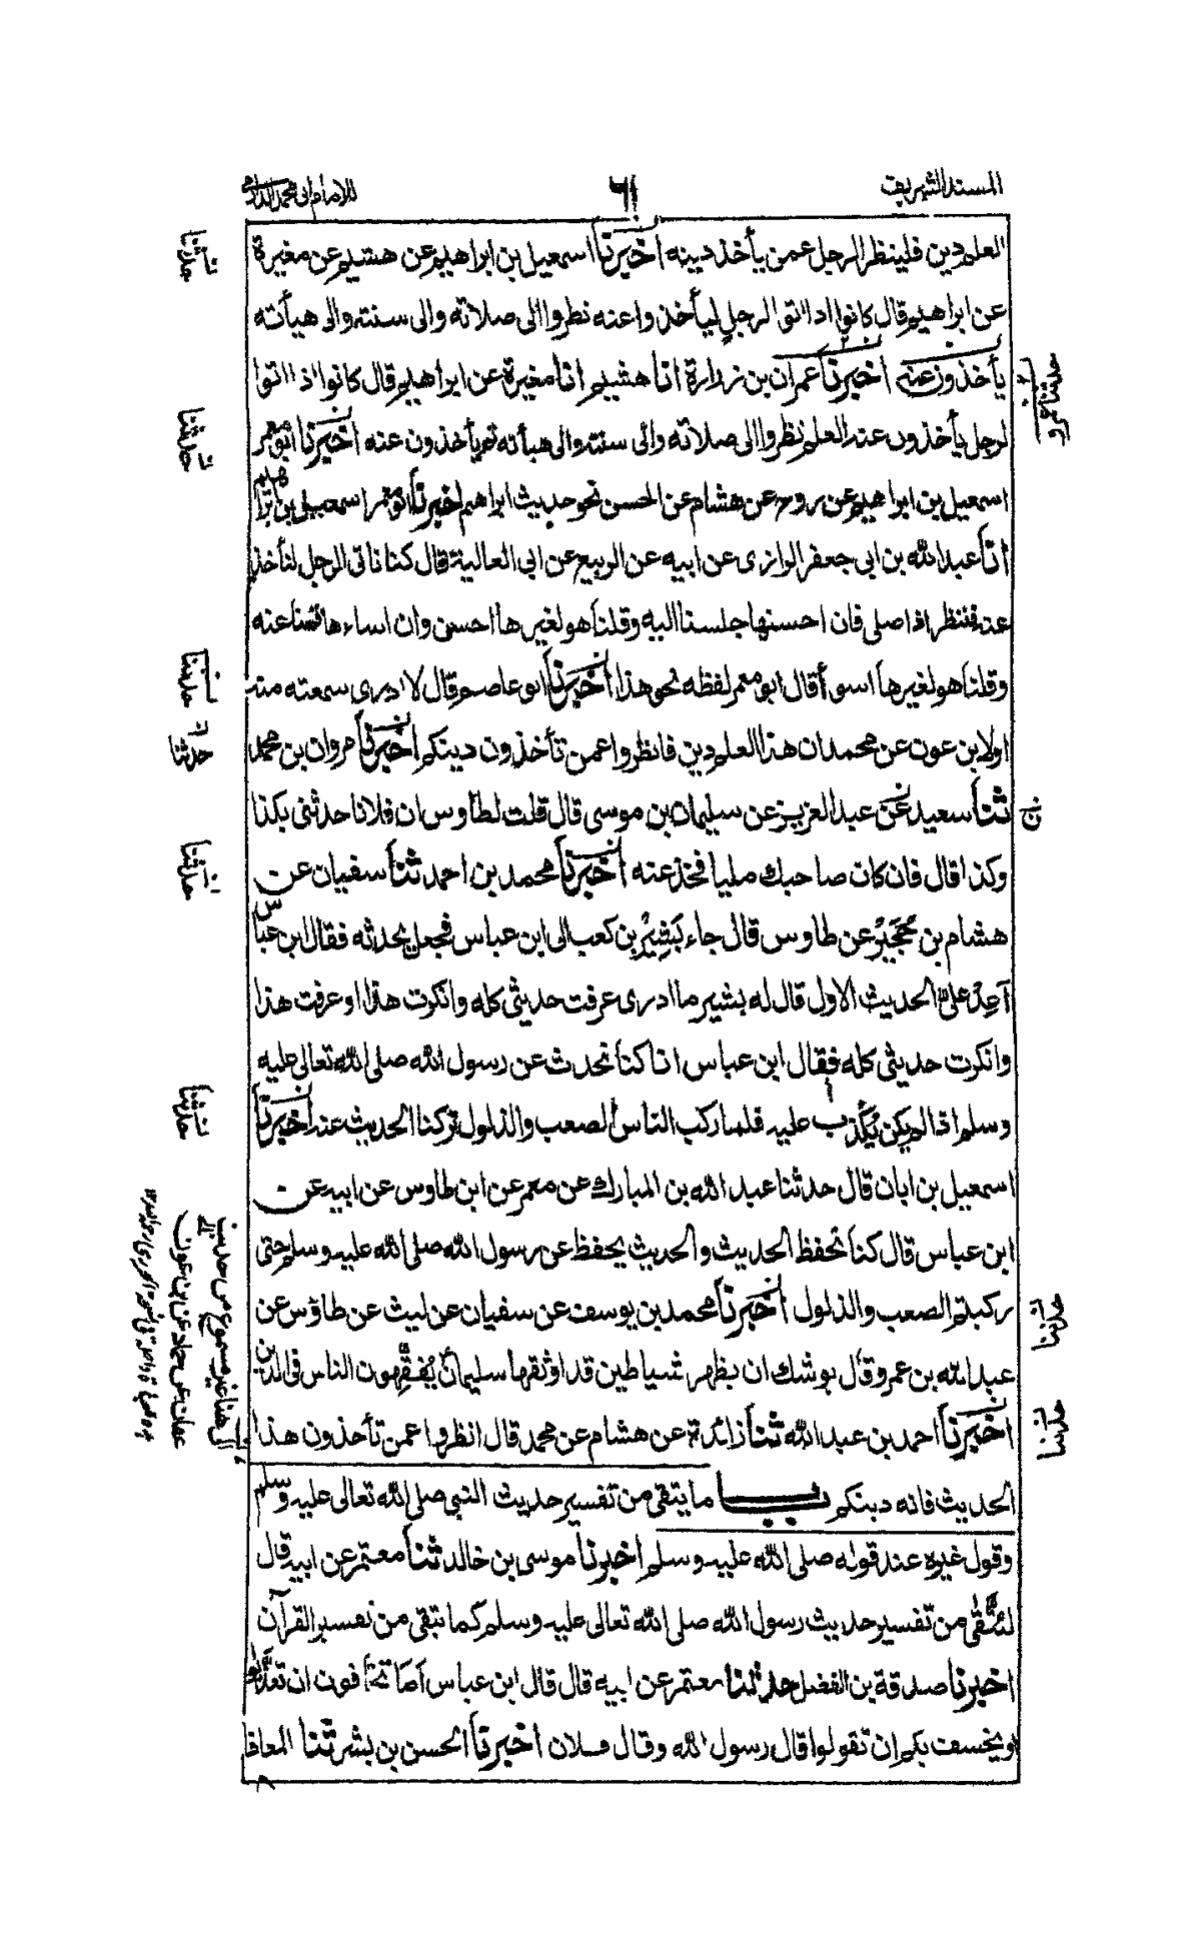 المسند الشريف
٦١
للامام ابى محمد الدارمى
العلم دين فلينظر الرجل عمن يأخذ دينه اخبرنا اسمعيل بن ابراهيم عن هشيم عن مغيرة
عن ابراهيم قال كانوا اذا اتوا الرجل ليأخذوا عنه نظروا الى صلاته والى سنته والى هيأته
يأخذون عنه اخبرنا عمران بن زرارة انا هشيم انا مغيرة عن ابراهيم قال كانوا اذا اتوا
لرجل يأخذون عنه العلم نظروا الى صلاته والى سنته والى هيأته ثم يأخذون عنه اخبرنا ابو معمر
اسمعيل بن ابراهيم عن روح عن هشام عن الحسن نحو حديث ابراهيم اخبرنا ابو معمر اسمعيل بن ابراهيم
انا عبد الله بن ابى جعفر الرازى عن ابيه عن الربيع عن ابى العالية قال كنا ناتى الرجل لنأخذ
عنه فننظر اذا صلى فان احسنها جلسنا اليه وقلنا هو لغيرها احسن وان اساءها قمنا عنه
وقلنا هو لغيرها اسوأ قال ابو معمر لفظه نحو هذا اخبرنا ابو عاصم قال لا ادرى سمعته منه
اولا بن عون عن محمد ان هذا العلم دين فانظروا عمن تأخذون دينكم اخبرنا مروان بن محمد
ثنا سعيد عن عبد العزيز عن سليمان بن موسى قال قلت لطاوس ان فلانا حدثنى بكذا
وكذا قال فان كان صاحبك مليا فخذ عنه اخبرنا محمد بن احمد ثنا سفيان عن
هشام بن حُجَيْر عن طاوس قال جاء بَشِيْر بن كعب الى ابن عباس فجعل يحدثه فقال ابن عباس
اَعِدْ علىّ الحديث الاول قال له بشير ما ادرى عرفت حديثى كله وانكرت هذا او عرفت هذا
وانكرت حديثى كله فقال ابن عباس انا كنا نحدث عن رسول الله صلى الله تعالى عليه
وسلم اذ الم يكن يُكْذَب عليه فلما ركب الناس الصعب والذلول تركنا الحديث عنه اخبرنا
اسمعيل بن ابان قال حدثنا عبد الله بن المبارك عن معمر عن ابن طاوس عن ابيه عن
ابن عباس قال كنا نحفظ الحديث والحديث يحفظ عن رسول الله صلى الله عليه وسلم حتى
ركبتم الصعب والذلول اخبرنا محمد بن يوسف عن سفيان عن ليث عن طاؤس عن
عبد الله بن عمرو قال يوشك ان يظهر شياطين قد اوثقها سليمان يُفَقِّهون الناس فى الدين
اخبرنا احمد بن عبد الله ثنا زائدة عن هشام عن محمد قال انظروا عمن تأخذون هذا
الحديث فانه دينكم باب ما يتقى من تفسير حديث النبى صلى الله تعالى عليه وسلم
وقول غيره عند قوله صلى الله عليه وسلم اخبرنا موسى بن خالد ثنا معتمر عن ابيه قال
لئتّقى من تفسير حديث رسول الله صلى الله تعالى عليه وسلم كما يتقى من تفسير القرآن
اخبرنا صدقة بن الفضل حدثنا معتمر عن ابيه قال قال ابن عباس اَمَا تخافون ان تعذَّبوا
او يخسف بكم ان تقولوا قال رسول الله وقال فلان اخبرنا الحسن بن بشر ثنا المعافا
حدثنا
حدثنا
حدثنا
حدثنا
حدثنا
حدثنا
حدثنا عمرو
حدثنا
حدثنا